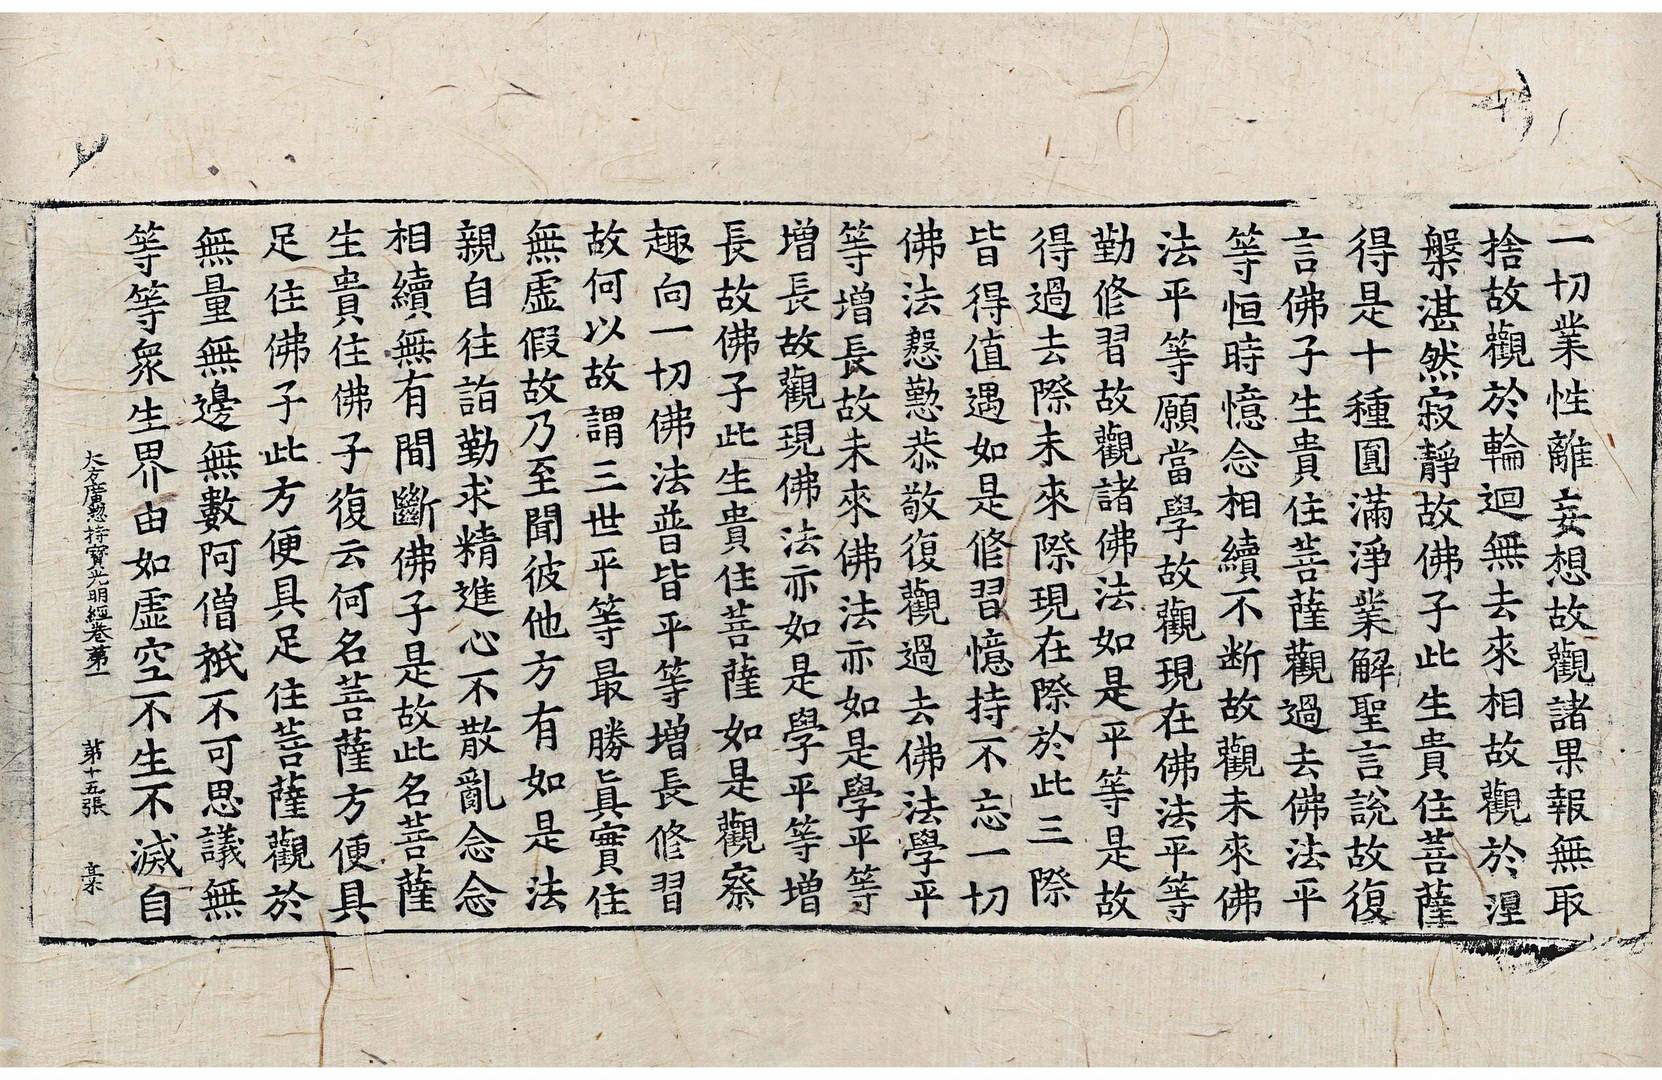 一切業性離妄想故觀諸果報無取
捨故觀於輪迴無去來相故觀於涅
槃湛然寂靜故佛子此生貴住菩薩
得是十種圓滿淨業解聖言說故復
言佛子生貴住菩薩觀過去佛法平
等恒時憶念相續不断故觀未來佛
法平等願當學故觀現在佛法平等
勤修習故觀諸佛法如是平等是故
得過去際未來際現在際於此三際
皆得值遇如是修習憶持不忘一切
佛法慇懃恭敬復觀過去佛法學平
等增長故未來佛法亦如是學平等
增長故觀現佛法亦如是學平等增
長故佛子此生貴住菩薩如是觀察
趣向一切佛法普皆平等增長修習
故何以故謂三世平等最勝真實住
無虛假故乃至聞彼他方有如是法
親自往詣勤求精進心不散亂念念
相續無有間斷佛子是故此名菩薩
生貴住佛子復云何名菩薩方便具
足住佛子此方便具足住菩薩觀於
無量無邊無數阿僧祇不可思議無
等等眾生界由如虛空不生不滅自
大方廣揔持寶光明經卷第一 第十五張